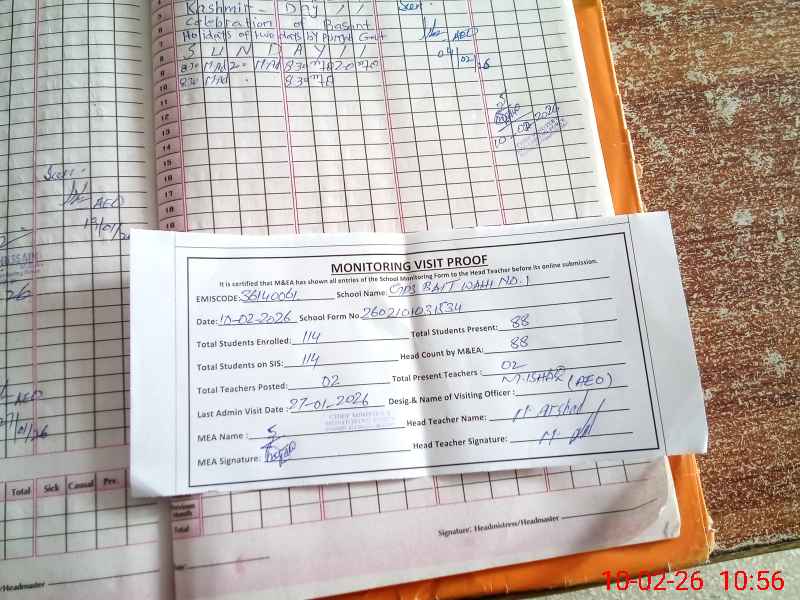 5 Kashmir Day
6 Celebration of Basant
7 Holidays of two days by Punjab Govt
8 SUNDAY
9
10
11
12
13
14
15
16
17
18
Seen
AEO
04/02/26
10-02-2026
Seen
AEO
19/01/26
AEO
MONITORING VISIT PROOF
It is certified that M&EA has shown all entries of the School Monitoring Form to the Head Teacher before its online submission.
EMISCODE: 36140061 School Name: GPS BAIT WAHI NO.1
Date: 10-02-2026 School Form No 2602101031534
Total Students Enrolled: 114 Total Students Present: 88
Total Students on SIS: 114 Head Count by M&EA: 88
Total Teachers Posted: 02 Total Present Teachers: 02
Last Admin Visit Date: 27-01-2026 Desig.& Name of Visiting Officer: M.ISHAQ (AEO)
MEA Name: Head Teacher Name: M Arshad
MEA Signature: Head Teacher Signature:
CHIEF MINISTER'S
MONITORING FORCE
Total Sick Casual Prv.
Previous Month
Total
Signature: Headmistress/Headmaster
/Headmaster
10-02-26 10:56